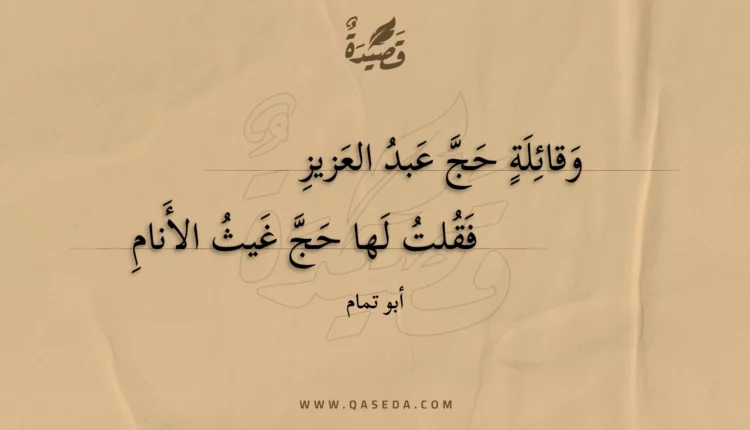 قَصِيْدَةٌ
وَقائِلَةٍ حَجَّ عَبدُ العَزيزِ
فَقُلتُ لَها حَجَّ غَيثُ الأَنامِ
أبو تمام
WWW.QASEDA.COM